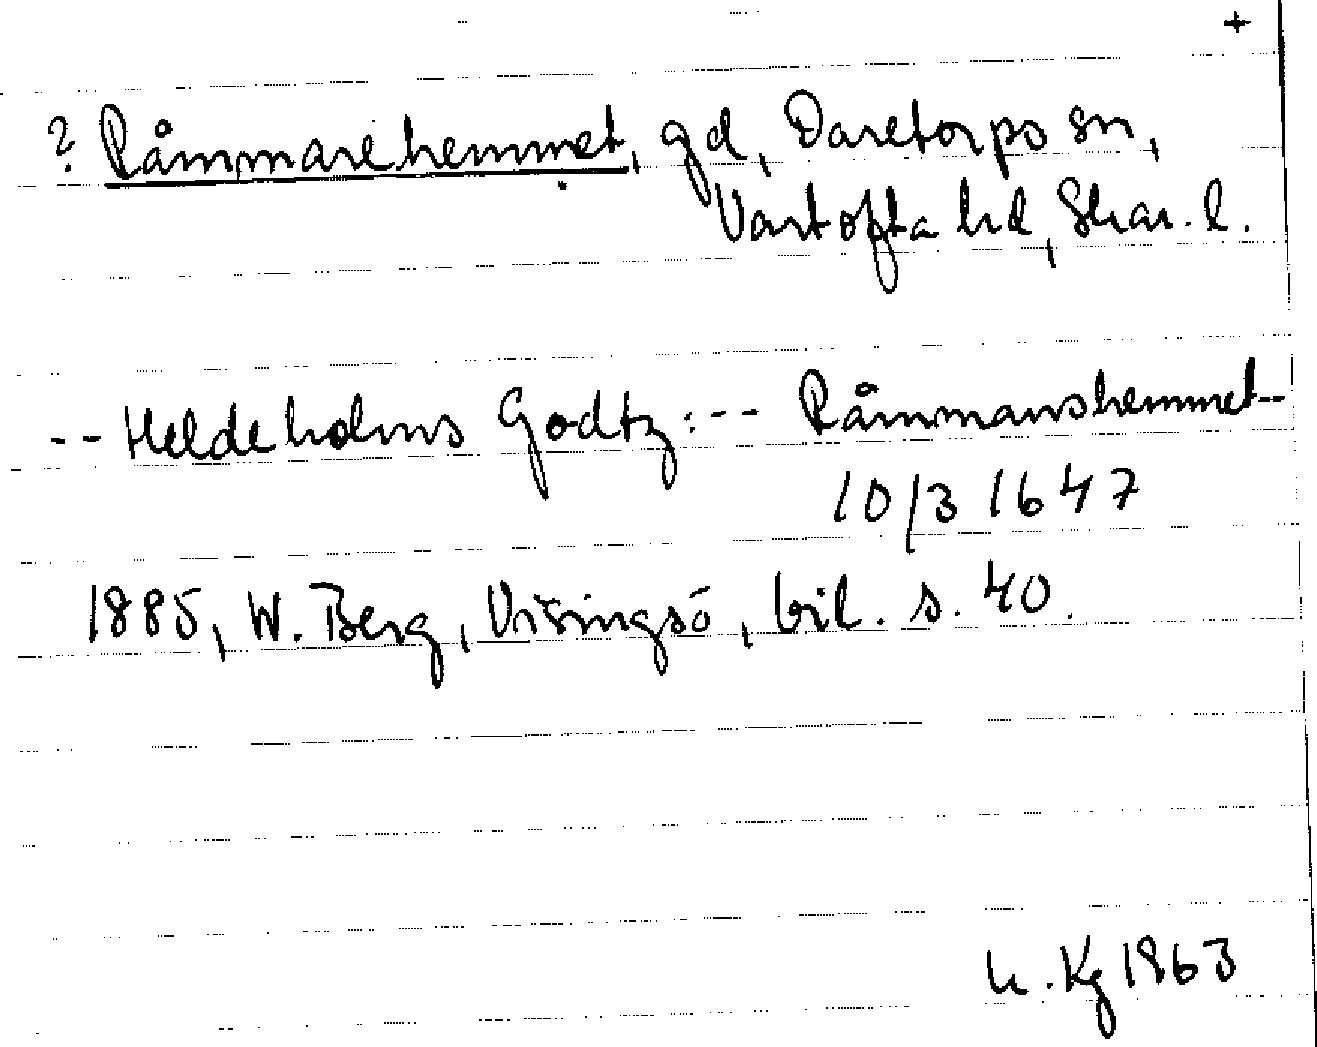 +
? Råmmarehemmet, gd, Daretorps sn,
Vartofta hd, Skar. l.
-- Heldeholms Godtz: -- Råmmanshemmet--
10/3 1647
1885, W. Berg, Visingsö, bil. s. 40.
h. Kg 1963